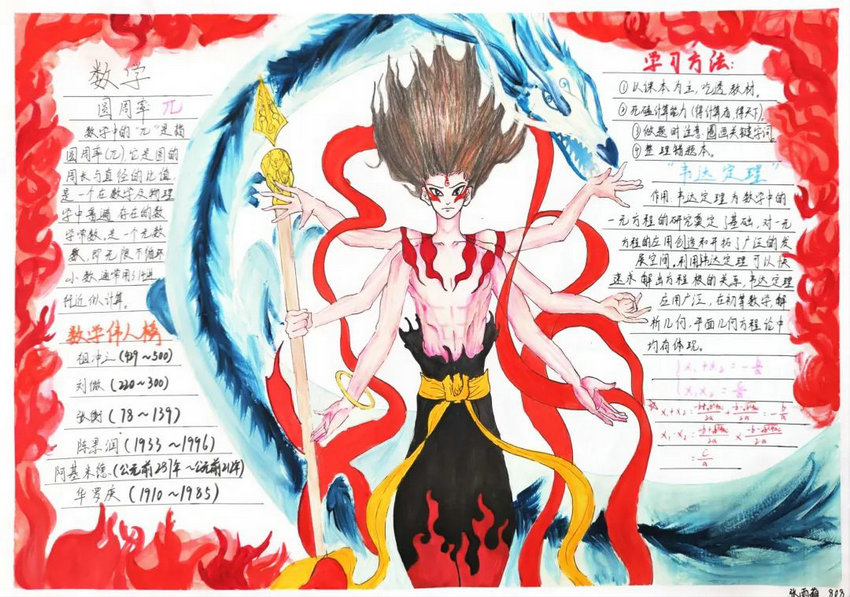 数学
圆周率 π
数学中的"π"是指
圆周率(π)它是圆的
周长与直径的比值,
是一个在数学及物理
学中普遍存在的数
学常数,是一个无数
数,即无限不循环
小数,通常用3.14进
行近似计算。
数学伟人榜
祖冲之(429~500)
刘徽(220~300)
张衡(78~139)
陈景润(1933~1996)
阿基米德(公元前287年~公元前212年)
华罗庚(1910~1985)
学习方法:
①以课本为主,吃透教材。
②死磕计算能力(得计算者得天下)
③做题时注意圈画关键字词
④整理错题本。
"韦达定理"
作用 韦达定理为数学中的
一元方程的研究奠定了基础,对一元
方程的应用创造和开拓了广泛的发
展空间,利用韦达定理可以快
速求解出方程根的关系,韦达定理
应用广泛,在初等数学,解
析几何,平面几何方程论中
均有体现。
x₁+x₂=-b/a
x₁x₂=c/a
808